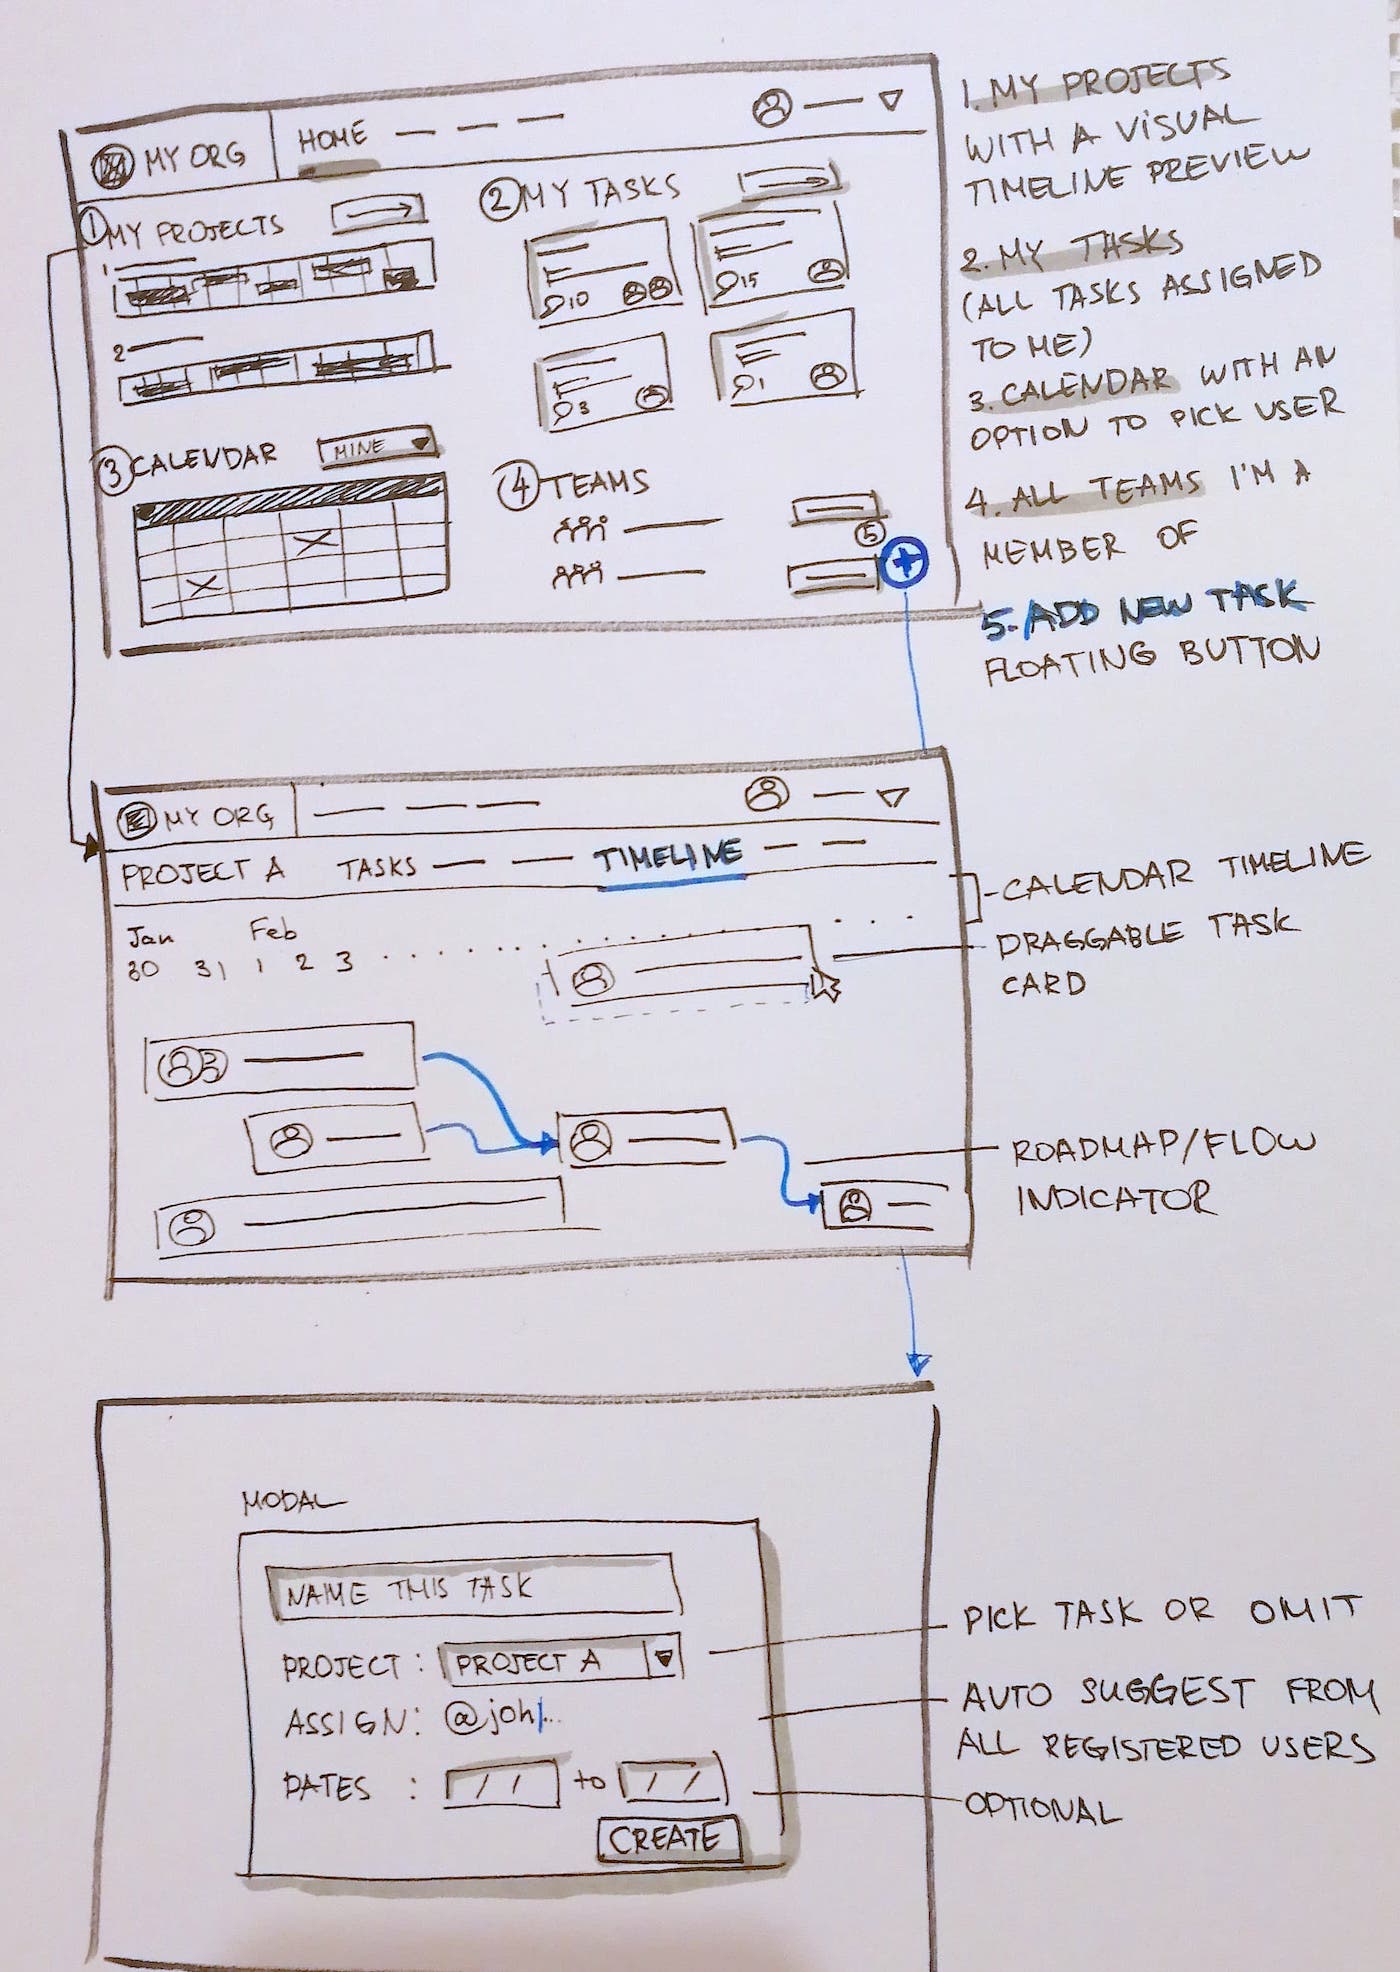 MY ORG
HOME
1 MY PROJECTS
1
2
2 MY TASKS
10
15
3
1
3 CALENDAR
MINE
4 TEAMS
5
+
1. MY PROJECTS
WITH A VISUAL
TIMELINE PREVIEW
2. MY TASKS
(ALL TASKS ASSIGNED
TO ME)
3. CALENDAR WITH AN
OPTION TO PICK USER
4. ALL TEAMS I'M A
MEMBER OF
5. ADD NEW TASK
FLOATING BUTTON
MY ORG
PROJECT A TASKS TIMELINE
Jan Feb
30 31 1 2 3 . . . . . . . . . . . . .
CALENDAR TIMELINE
DRAGGABLE TASK
CARD
ROADMAP/FLOW
INDICATOR
MODAL
NAME THIS TASK
PROJECT: PROJECT A
ASSIGN: @joh|...
DATES : / / to / /
CREATE
PICK TASK OR OMIT
AUTO SUGGEST FROM
ALL REGISTERED USERS
OPTIONAL